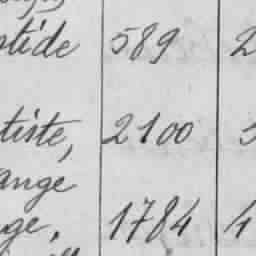 ptide 589 2
tiste, 2100
ange
ge, 1784 4